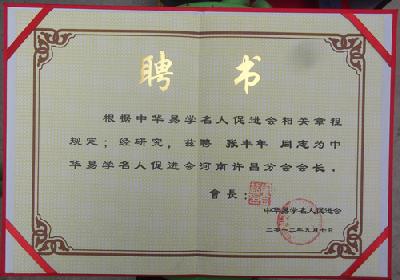 聘书
根据中华易学名人促进会相关章程
规定；经研究，兹聘 张丰年 同志为中
华易学名人促进会河南许昌分会会长。
會長：
中华易学名人促进会
二零一二年九月十日